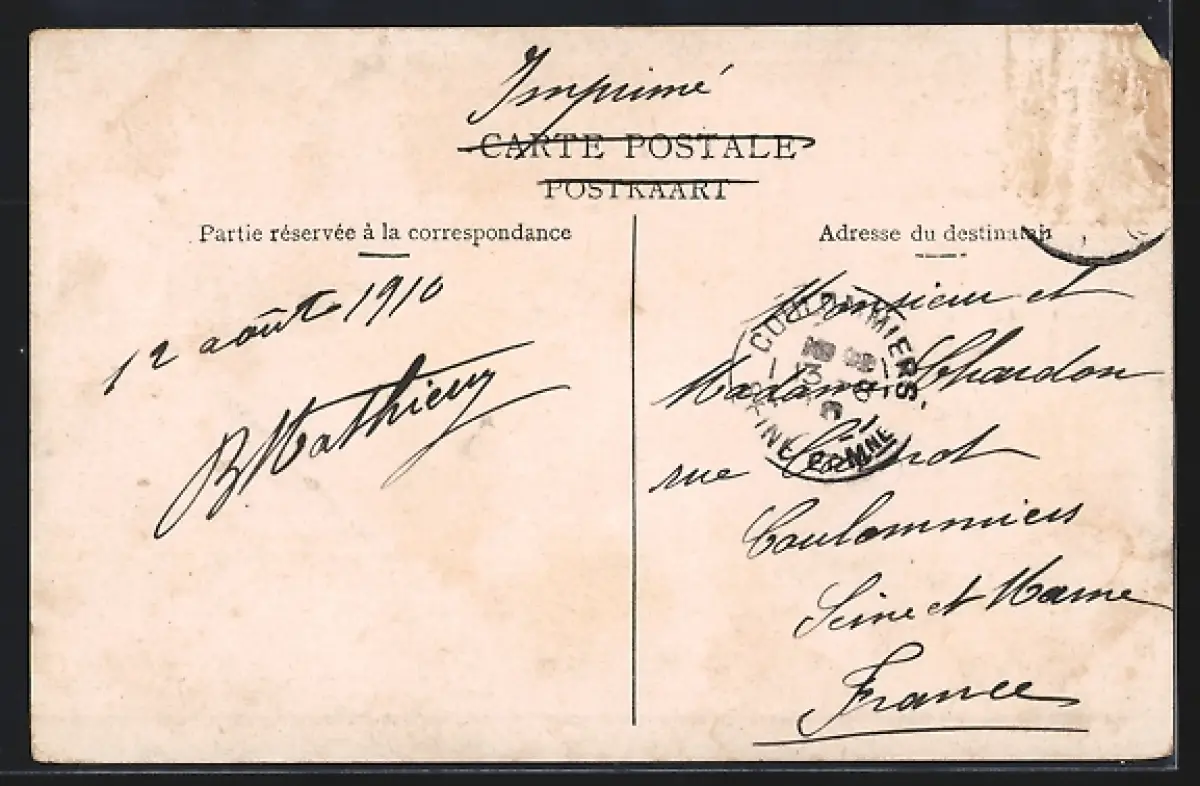 Imprimé
CARTE POSTALE
POSTKAART
Partie réservée à la correspondance
12 août 1910
B Mathieu
Adresse du destinatair
Monsieur et
Madame Chardon
rue
Coulommiers
Seine et Marne
France
COULOMMIERS
SEINE ET MARNE